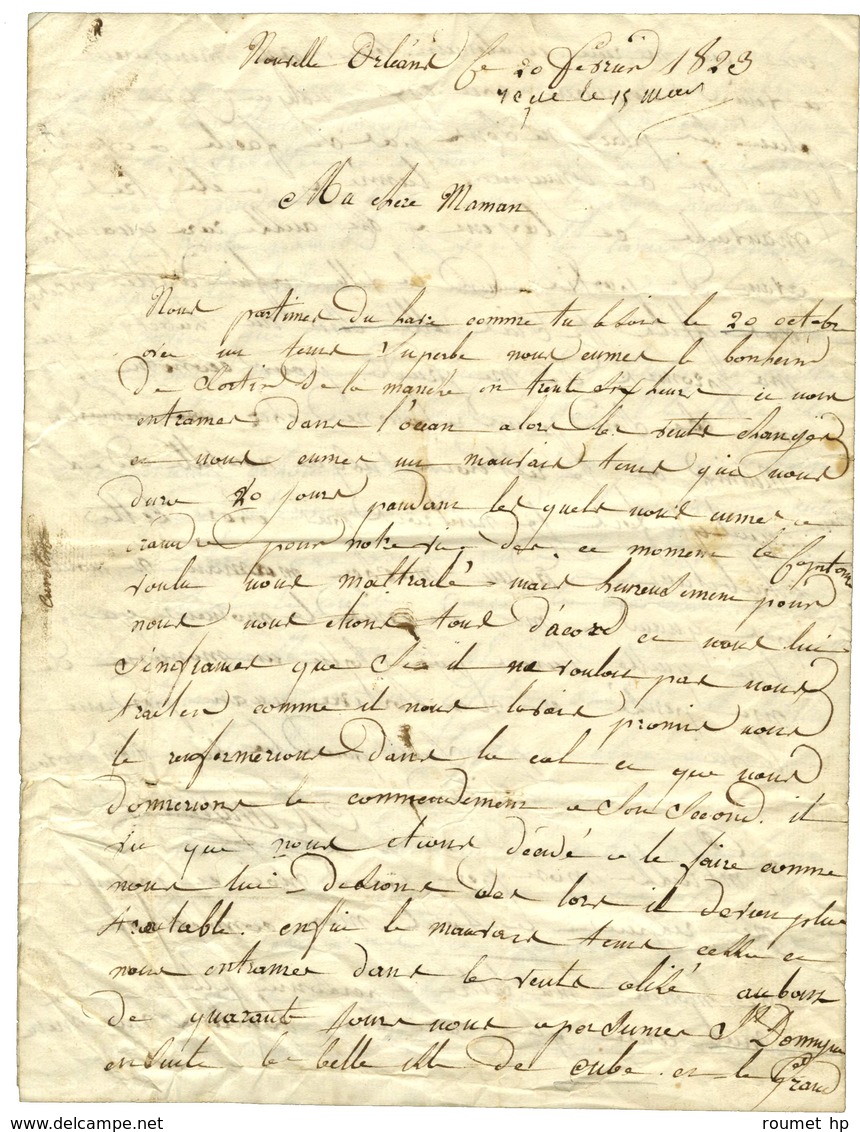 Nouvelle Orléans le 20 fevrier 1823
reçue le 15 mars
Ma chere Maman
Nous partimes du havre comme tu le sais le 20 octobre
avec un tems superbe nous eumes le bonheur
de sortir de la manche en trente six heures et nous
entrames dans l'ocean alors les vents changés
et nous eumes un mauvais tems qui nous
dura 20 jours pendant lesquels nous eumes a
craindre pour notre vie, des ce moment le Capitaine
voulu nous maltraité mais heureusement pour
nous nous etions tous d'acord et nous lui
signifiames que si il ne voulou pas nous
traiter comme il nous lavais promis nous
le renfermerions dans la cal et que nous
donnerions le commendement a son second. il
vu que nous etions décidé a le faire comme
nous lui desions des lors il devin plus
traitable. enfin le mauvais tems cessa et
nous entrames dans les vents alisé au bout
de quarant jours nous apersumes St Domingue
ensuite la belle isle de cube. et le grand